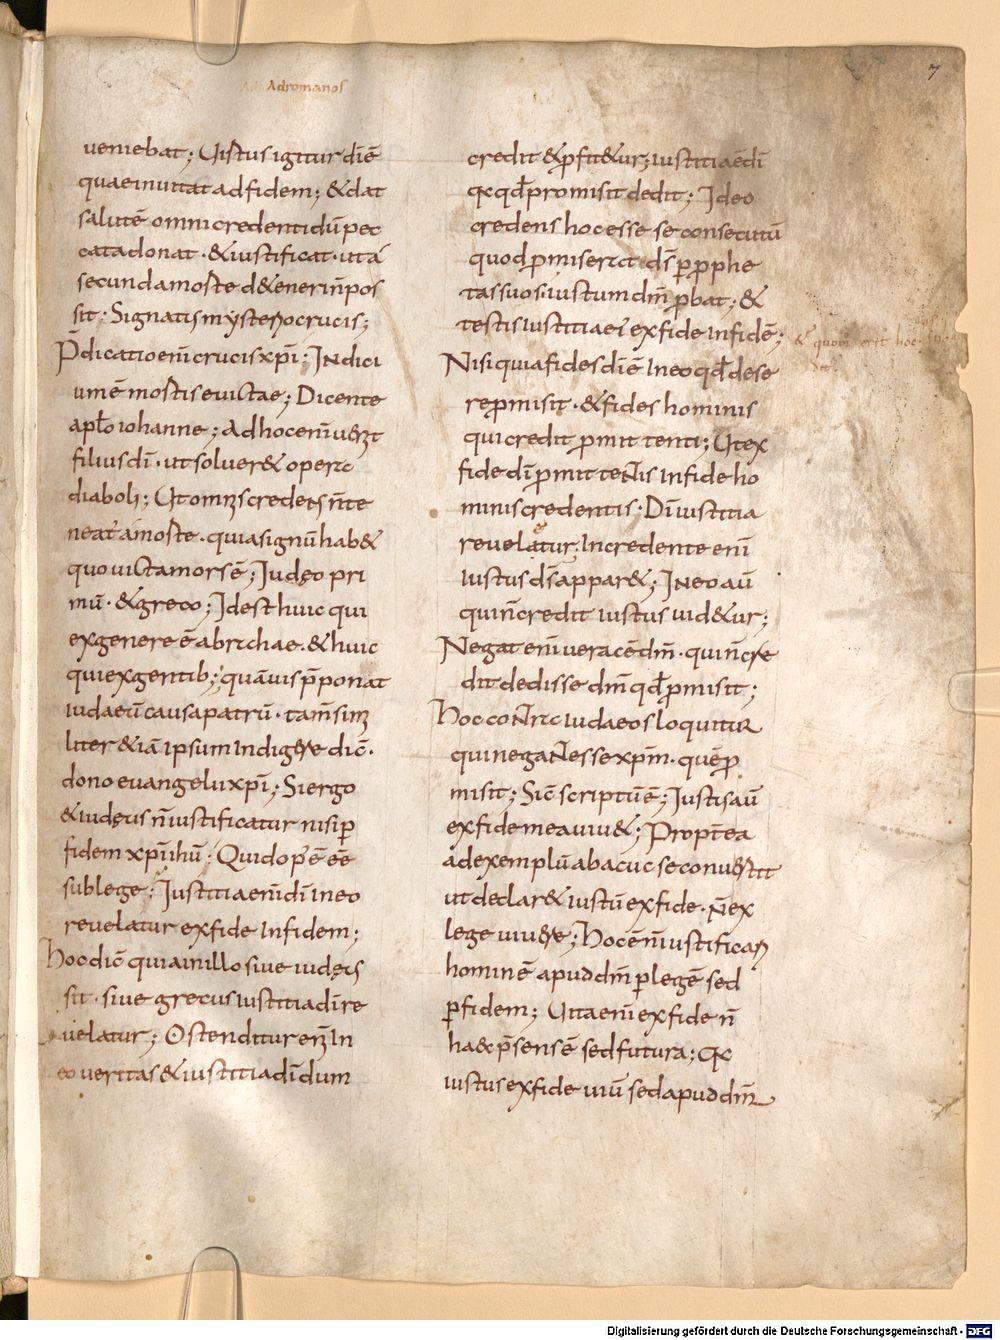 Adromanos
7
veniebat; Uistus igitur di ē
quae inuitat ad fidem; & dat
salutē omni credenti dū pec
cata donat · & iustificat · ut a
secunda mo&ste d&eneri n̄ pos
sit · Signatis mysterio crucis;
P̄dicatio enī crucis xp̄i; Indici
um ē mortis euictae; Dicente
apl̄o iohanne; Ad hoc enī uenit
filius dī · ut solueret opera
diaboli; Ut omnis credens n̄ te
neat̄ a morte · quia signū hab&
quo uicta mors ē; Iudęo pri
mū · & greco; Id est huic qui
ex genere ē abrahae · & huic
qui ex gentib; quāuis p̄ponat
iudaeū causa patrū · tam̄ sim
liter & iā ipsum indigere dic̄ ·
dono euangelii xp̄i; Si ergo
& iudeus n̄ iustificatur nisi per
fidem xp̄i ihū; Quid opꝰ ē eē
sub lege; Iustitia enī dī in eo
reuelatur ex fide in fidem;
Hoc dic̄ quia in illo siue iudęus
sit · siue grecus iustitia dī re
uelatur; Ostenditur enī in
eo ueritas & iustitia dī dum
credit & p̄fit&ur; iustitia ē dī
quia qd̄ promisit dedit; Ideo
credens hoc esse se consecutū
quod p̄miserat ds̄ p̄ p̄phe
tas suos · iustum dm̄ p̄bat; &
testis iustitiae ei ex fide in fidē;
& quom erit hoc
Nisi quia fides dī ē in eo qd̄ de se
rep̄misit · & fides hominis
qui credit p̄mittenti; Ut ex
fide dī p̄mittentis in fide ho
minis credentis · Dī iustitia
reuelatur; In credente enī
iustus ds̄ appar&; In eo aū
qui n̄ credit iustus uid&ur;
Negat enī uerace dm̄ · qui n̄ cre
dit dedisse dm̄ qd̄ p̄misit;
Hoc contra iudaeos loquitur
qui negant esse xpm̄ · quē p̄
misit; Sic̄ scriptū ē; Iustus aū
ex fide mea uiu&; Propt̄ea
ad exemplū abacuc se conuertit
ut declar& iustū ex fide · n̄ ex
lege uiuere; Hoc ē n̄ iustificari
hominē apud dm̄ p̄ legē sed
p̄ fidem; Uita enī ex fide n̄
haec p̄sens ē sed futura; quia
iustus ex fide uiū sed apud dm̄
Digitalisierung gefördert durch die Deutsche Forschungsgemeinschaft - DFG